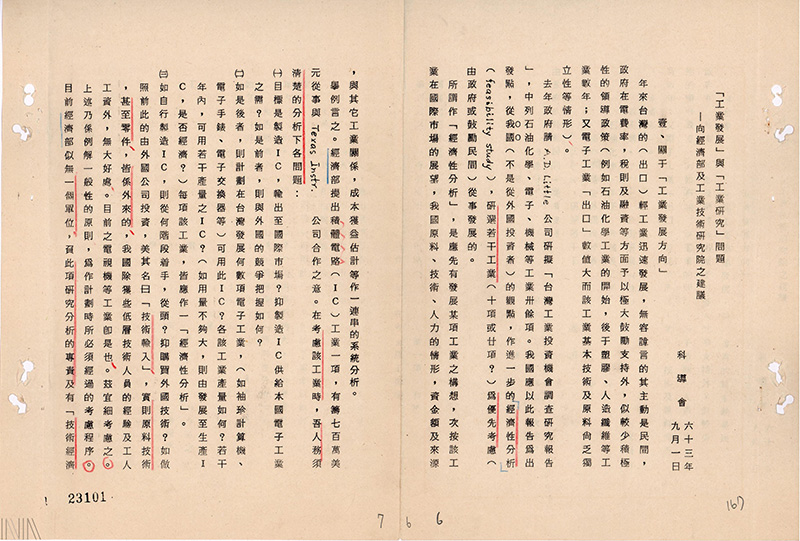 「工業發展」與「工業研究」問題
—向經濟部及工業技術研究院之建議
科導會
六十三年
九月一日
壹、關于「工業發展方向」
年來台灣的(出口)輕工業迅速發展,無容諱言的其主動是民間,
政府在電費率,稅則及融資等方面予以極大鼓勵支持外,似較少積極
性的領導政策(例如石油化學工業的開始,後于塑膠、人造纖維等工
業數年;又電子工業「出口」數值大而該工業基本技術及原料尚乏獨
立性等情形)。
去年政府請 A.D. Little 公司研擬「台灣工業投資機會調查研究報告
」,中列石油化學、電子、機械等工業卅餘項。我國應以此報告爲出
發點,從我國(不是從外國投資者)的觀點,作進一步的「經濟性分析
(feasibility study),研選若干工業(十項或廿項?)爲優先考慮(
由政府或鼓勵民間)從事發展的。
所謂作「經濟性分析」,是應先有發展某項工業之構想,次按該工
業在國際市場的展望,我國原料、技術、人力的情形,資金額及來源
167
6
,與其它工業關係,成本獲益估計等作一連串的系統分析。
舉例言之。經濟部提出積體電路(IC)工業一項,有籌七百萬美
元從事與 Texas Instr. 公司合作之意。在考慮該工業時,吾人務須
清楚的分析下各問題:
㈠目標是製造IC,輸出至國際市場?抑製造IC供給本國電子工業
之需?如是前者,則與外國的競爭把握如何?
㈡如是後者,則計劃在台灣發展何數項電子工業,(如袖珍計算機、
電子手錶、電子交換器等)可用此IC?各該工業產量如何?若干
年內,可用若干產量之IC?(如用量不夠大,則由發展至生產I
C,是否經濟?)每項該工業,皆應作一「經濟性分析」。
㈢如自行製造IC,則從何階段着手,從頭?抑購買外國技術?如做
照前此的由外國公司投資,美其名曰「技術輸入」,實則原料技術
,甚至零件,皆係外來的,我國除獲些低層技術人員的經驗及工人
工資外,無大好處。目前之電視機等工業卽是也。茲宜細考慮之。
上述乃係例解一般性的原則,爲作計劃時所必須經過的考慮程序。
目前經濟部似無一個單位,負此項研究分析的專責及有「技術經濟
23101
7 6